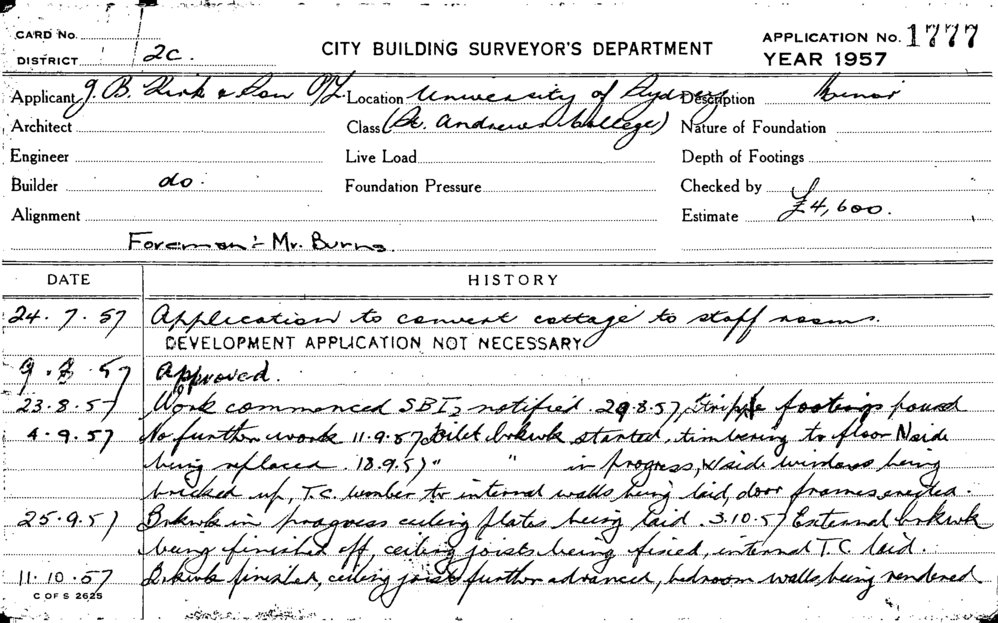 CARD No.
DISTRICT 2C.
CITY BUILDING SURVEYOR'S DEPARTMENT
APPLICATION No. 1777
YEAR 1957
Applicant J. B. Kirk & Son P/L. Location University of Sydney Description Minor
Architect Class (St. Andrew's College) Nature of Foundation
Engineer Live Load Depth of Footings
Builder do. Foundation Pressure Checked by
Alignment Estimate £4,600.
Foreman :- Mr. Burns.
DATE HISTORY
24.7.57 Application to convert cottage to staff rooms.
DEVELOPMENT APPLICATION NOT NECESSARY
9. .57 Approved.
23.8.57 Work commenced SBI2 notified. 29.8.57 footings poured
4.9.57 No further work 11.9.57 Toilet brkwk started, timbering to floor N side
being replaced. 18.9.57 " " in progress, W side windows being
bricked up, T.C. to internal walls being laid, door frames erected.
25.9.57 Brkwk in progress ceiling plates being laid. 3.10.57 External brkwk
being finished off, ceiling joists being fixed, internal T.C laid.
11.10.57 Brkwk finished, ceiling joist further advanced, bedroom walls being rendered
C OF S 2625